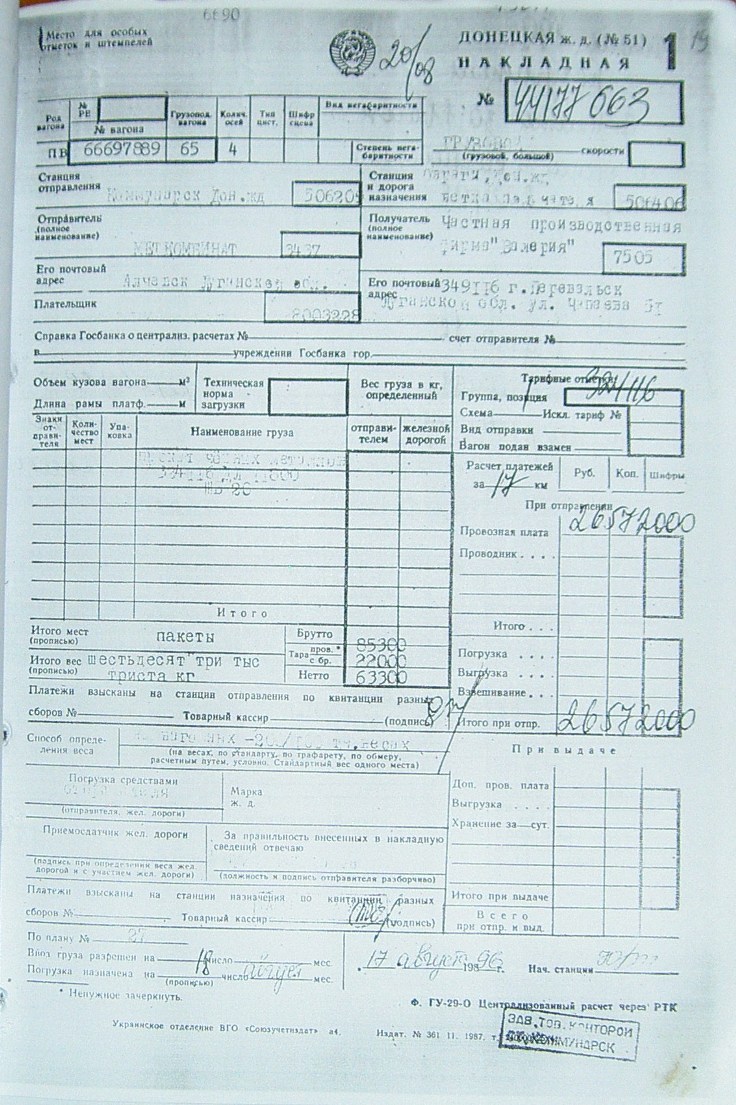 6690
Место для особых
отметок и штемпелей
20/08
ДОНЕЦКАЯ ж. д. (№ 51)
НАКЛАДНАЯ
1
19
№ 44177663
Род вагона
№ РЕ
№ вагона
Грузопод. вагона
Колич. осей
Тип цист.
Шифр сцепа
Вид негабаритности
ПВ 66697889 65 4
Степень негабаритности
ГРУЗОВОЙ
(грузовой, большой) скорости
Станция
отправления
Коммунарск Дон.жд 506205
Станция
и дорога
назначения
506406
Отправитель
(полное
наименование)
МЕТКОМБИНАТ 3437
Получатель
(полное
наименование)
Частная производственная
фирма "Валерия"
7505
Его почтовый
адрес
Алчевск Луганской обл.
Его почтовый
адрес
349116 г. Перевальск
Луганской обл. ул. Чапаева
Плательщик
8003228
Справка Госбанка о централиз. расчетах № счет отправителя №
в учреждении Госбанка гор.
Объем кузова вагона м³
Длина рамы платф. м
Техническая
норма
загрузки
Вес груза в кг,
определенный
Тарифные отметки
Группа, позиция 324116
Схема Искл. тариф №
Вид отправки
Вагон подан взамен
Знаки отправителя
Количество мест
Упаковка
Наименование груза
отправителем
железной дорогой
прокат черных металлов
Расчет платежей
за 17 км
Руб. Коп. Шифры
При отправлении
Провозная плата 26572000
Проводник
Итого
Итого
Итого мест
(прописью)
пакеты
Брутто 85300
Тара пров. *
с бр. 22000
Нетто 63300
Итого вес
(прописью)
шестьдесят три тыс
триста кг
Погрузка
Выгрузка
Взвешивание
Итого при отпр. 26572000
Платежи взысканы на станции отправления по квитанции разных
сборов № Товарный кассир (подпись)
Способ определения веса
(на весах, по стандарту, по трафарету, по обмеру,
расчетным путем, условно. Стандартный вес одного места)
При выдаче
Погрузка средствами
(отправителя, жел. дороги)
Марка
ж. д.
Доп. пров. плата
Выгрузка
Хранение за сут.
Приемосдатчик жел. дороги
(подпись при определении веса жел.
дорогой и с участием жел. дороги)
За правильность внесенных в накладную
сведений отвечаю
(должность и подпись отправителя разборчиво)
Платежи взысканы на станции назначения по квитанции разных
сборов № Товарный кассир (подпись)
Итого при выдаче
Всего
при отпр. и выд.
По плану № 27
Ввоз груза разрешен на 18 число мес.
Погрузка назначена на число август мес.
(прописью)
17 август 1996 г. Нач. станции
* Ненужное зачеркнуть.
Ф. ГУ-29-О Централизованный расчет через РТК
Украинское отделение ВГО «Союзучетиздат» а4. Издат. № 361 11. 1987. т.
ЗАВ. ТОВ. КОНТОРОЙ
СТ. КОММУНАРСК